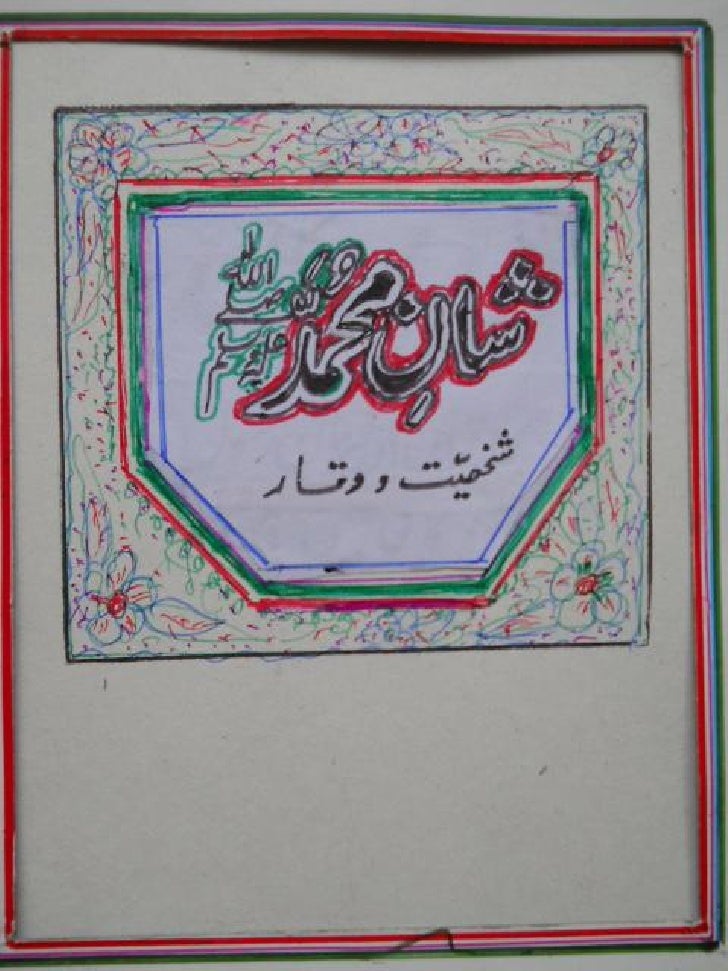 شانِ محمدؐ صلی اللہ علیہ وسلم
شخصیّت و وقار